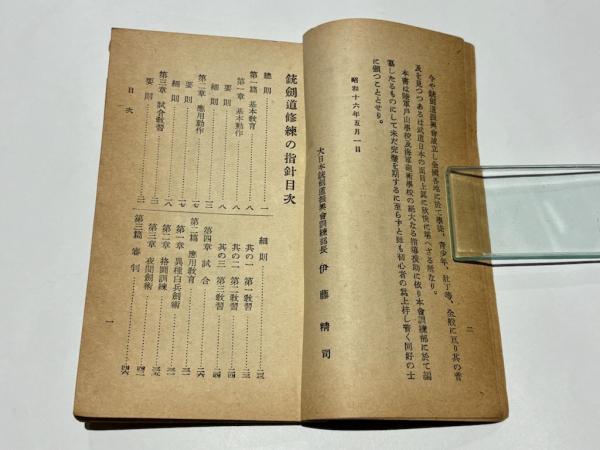 二
今や銃劍道振興會成立し全國各地に於て學徒、青少年、壯丁等、全般に亙り其の普
及を見つつあるは武道日本の面目上眞に欣快に堪へざる所なり。
本書は陸軍戸山學校及海軍砲術學校の絶大なる指導援助に依り本會訓練部に於て編
纂したるものにして未だ完璧を期するに至らずと雖も初心者の爲上梓し普く同好の士
に頒つこととせり。
昭和十六年五月一日
大日本銃劍道振興會訓練部長 伊藤精司
銃劍道修練の指針目次
總則……一
第一篇 基本教育……八
第一章 基本動作……八
要則……八
細則……
第二章 應用動作……
要則……
細則……
第三章 試合教習……
要則……
細則……
其の一 第一教習……
其の二 第二教習……
其の三 第三教習……
第四章 試合……
第二篇 應用教育……
第一章 異種白兵劍術……
第二章 格鬪訓練……
第三章 夜間劍術……
第三篇 審判……
目次
一